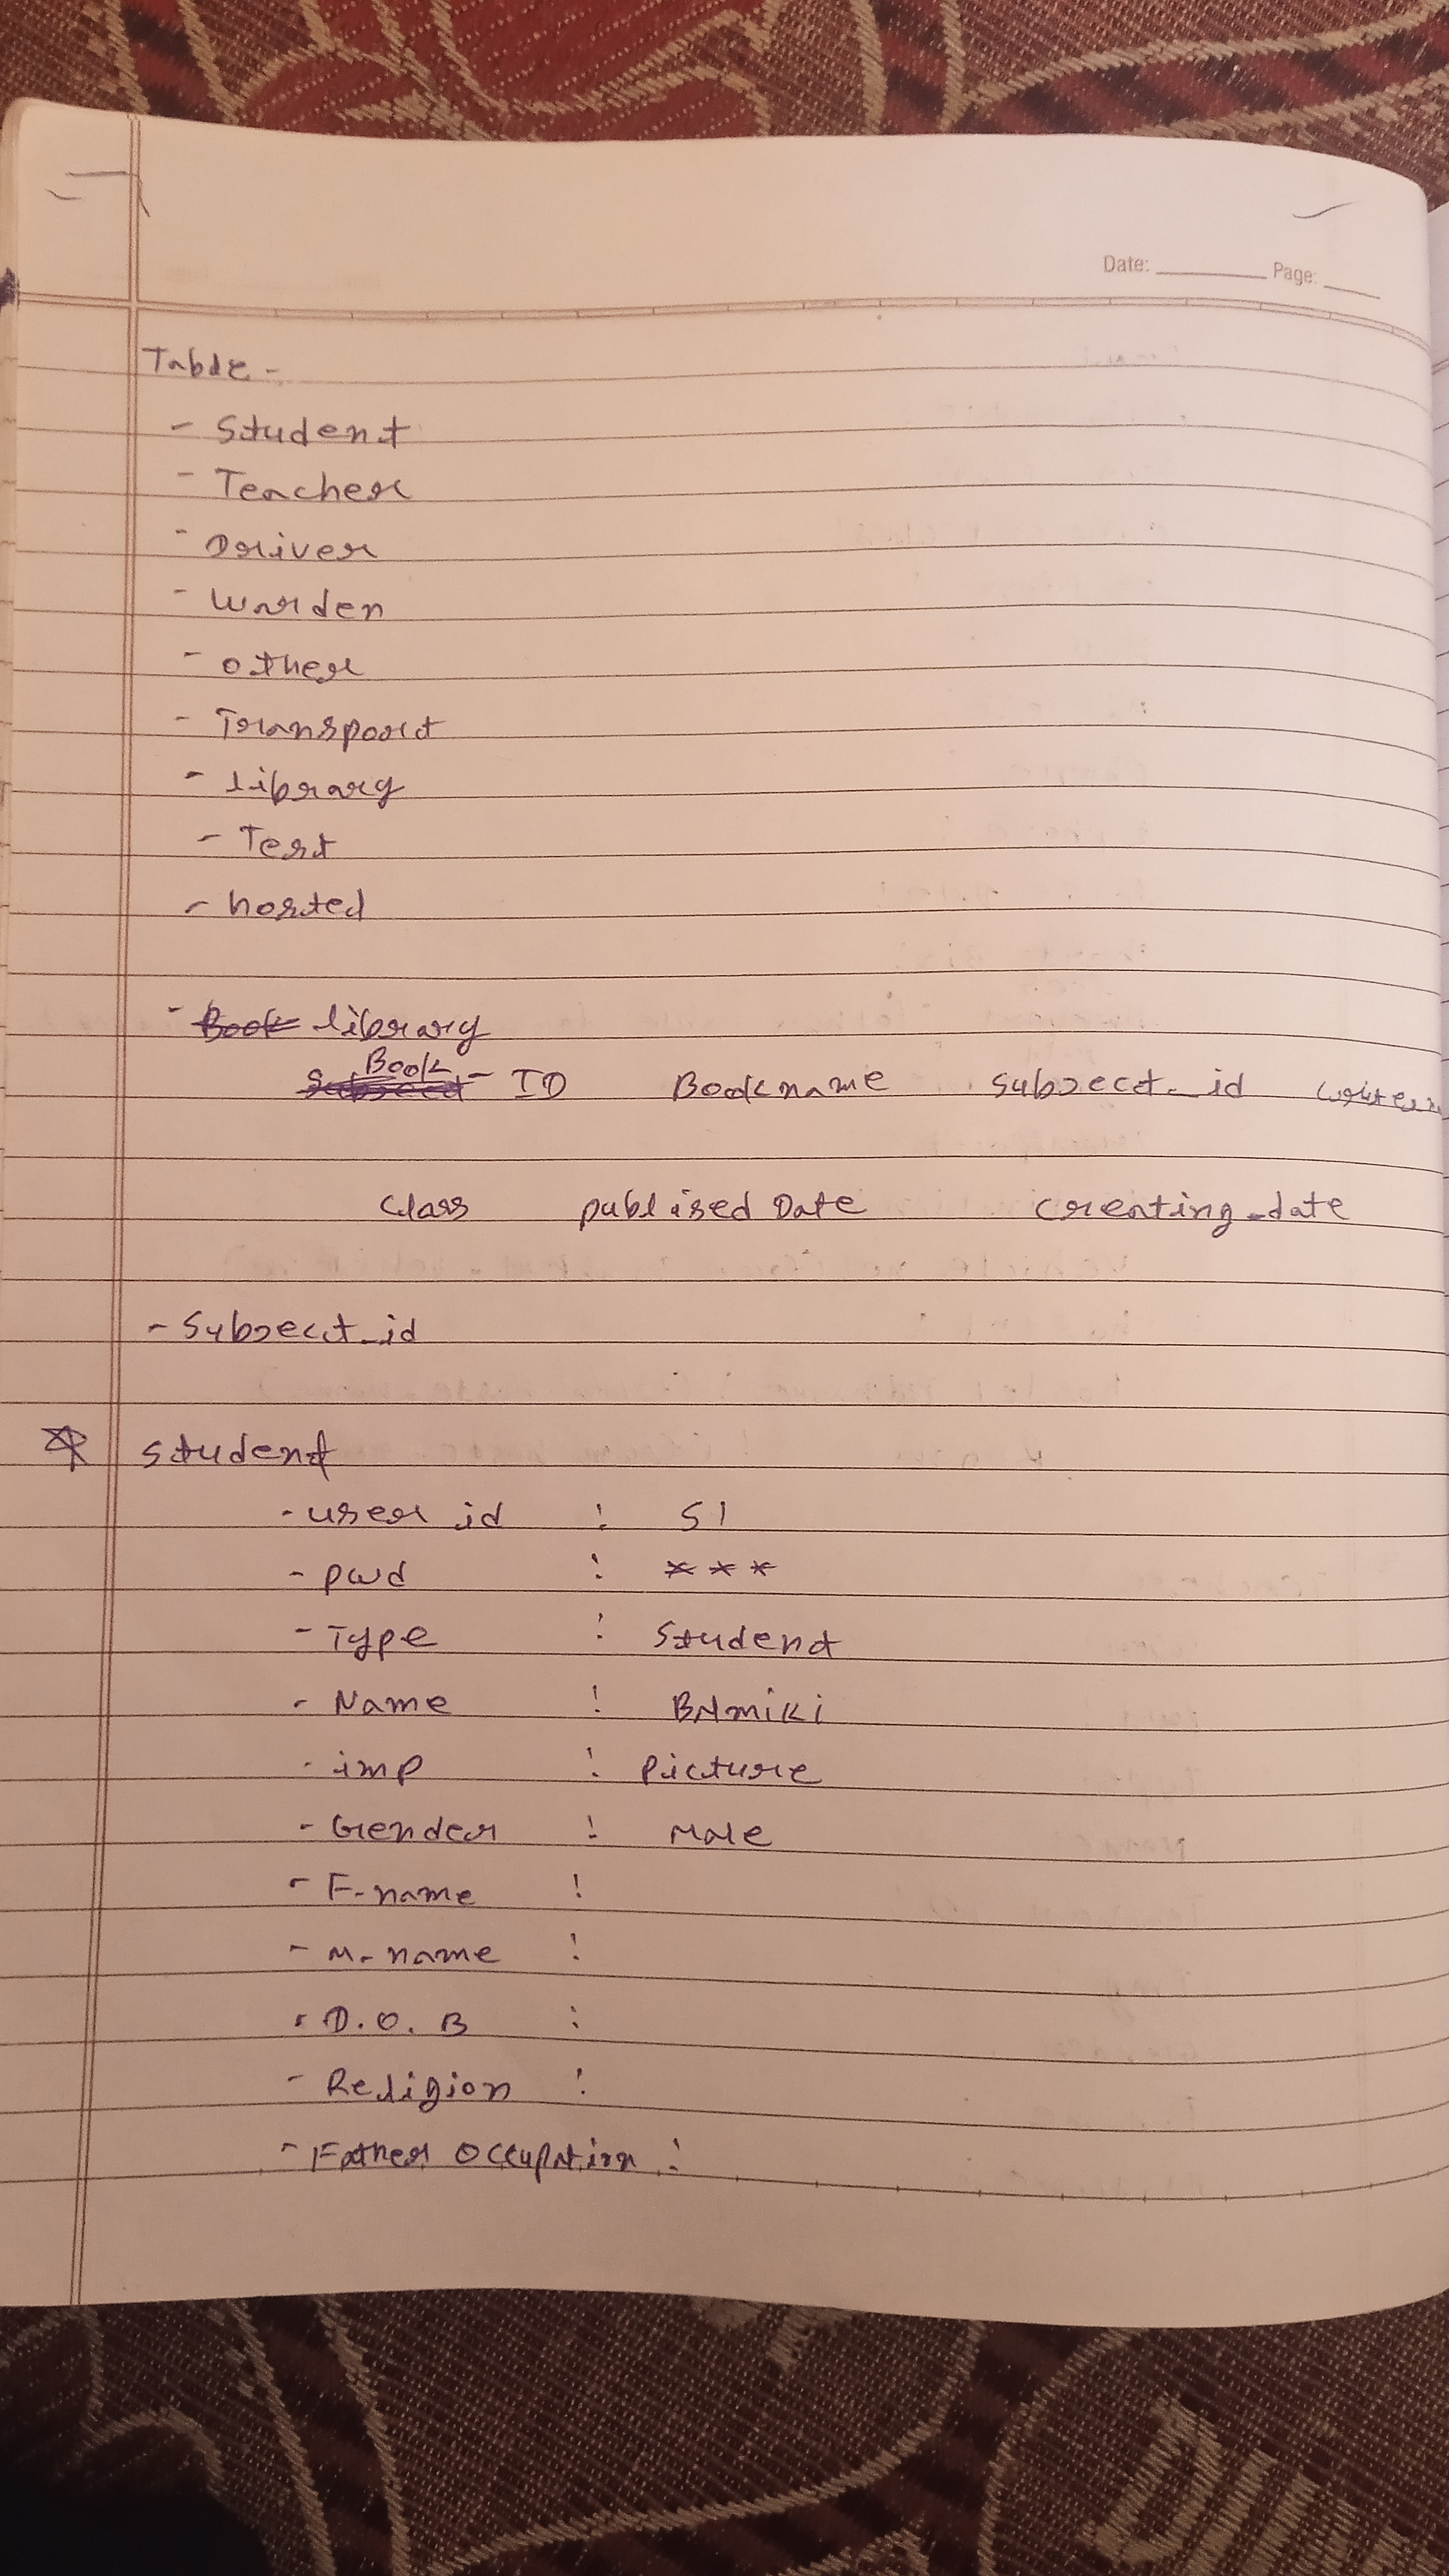 Date: Page:
Table -
- Student
- Teacher
- Driver
- Warden
- other
- Transport
- library
- Test
- hostel
- Book library
Book - ID Bookname Subject_id writer
Class publised Date creating_date
- Subject_id
Student
- user id : S1
- pwd : ***
- Type : Student
- Name : Balmiki
- imp : Picture
- Gender : Male
- F-name :
- M-name :
- D.O.B :
- Religion :
- Father Occupation :